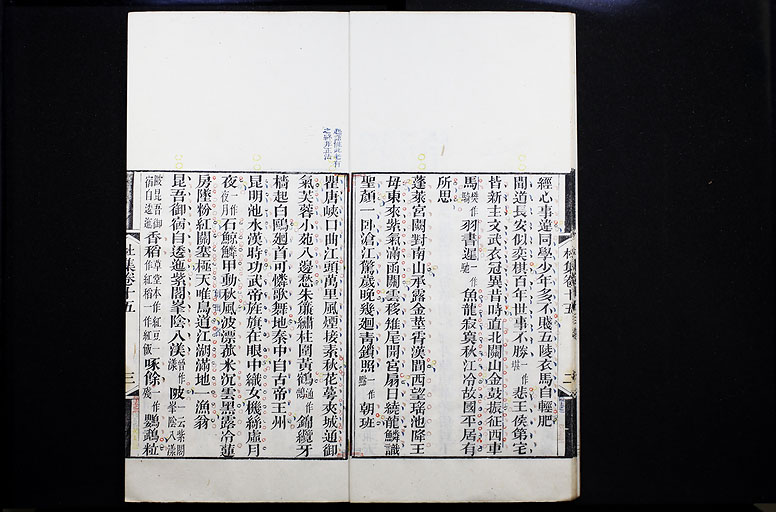 經心事違同學少年多不賤五陵衣馬自輕肥
聞道長安似奕棋百年世事不勝一作堪悲王侯第宅
皆新主文武衣冠異昔時直北關山金鼓振征西車
馬一作騎羽書遲一作馳魚龍寂寞秋江冷故國平居有
所思
蓬萊宮闕對南山承露金莖霄漢間西望瑤池降王
母東來紫氣滿函關雲移雉尾開宮扇日繞龍鱗識
聖顏一臥滄江驚歲晚幾廻青鎖照一作點朝班
瞿唐峽口曲江頭萬里風煙接素秋花萼夾城通御
氣芙蓉小苑入邊愁朱簾繡柱圍黃鶴通作鵠錦纜牙
檣起白鷗廻首可憐歌舞地秦中自古帝王州
昆明池水漢時功武帝旌旗在眼中織女機絲虛月
夜一作夜月石鯨鱗甲動秋風波漂菰米沉雲黑露冷蓮
房墜粉紅關塞極天唯鳥道江湖滿地一漁翁
昆吾御宿自逶迤紫閣峯陰入渼陂一云紫閣峯陰入渼
陂昆吾御宿自逶迤香稻草堂本作紅豆一作紅稻一作紅飯啄餘一作殘鸚鵡粒
杜集卷十五
二
杜集卷十五
三